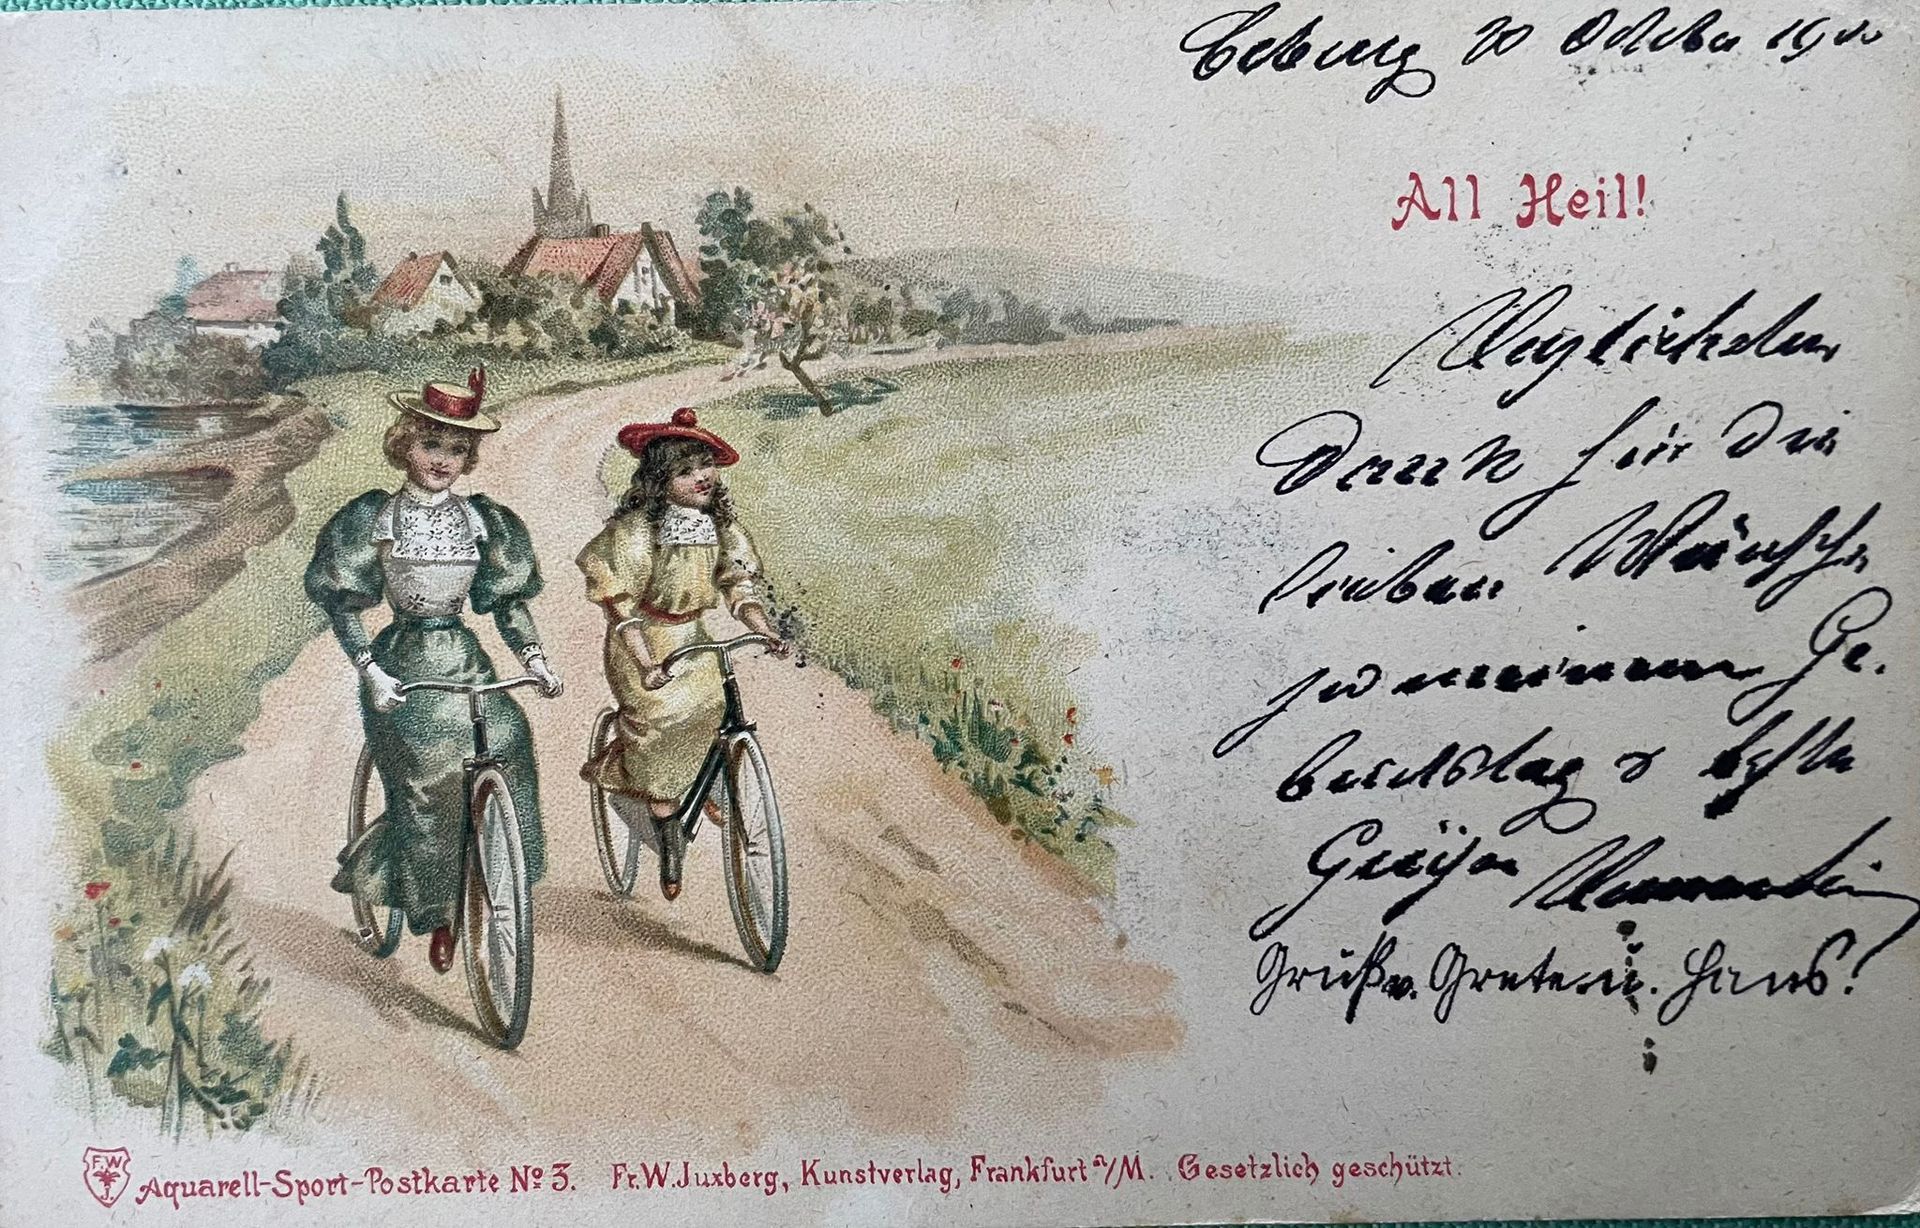 Coburg 20 October 1900
All Heil!
Dank für Die
lieben Wünsche
zu meinem Ge-
burtstag u beste
Grüße
Gruß v. Grete u. Hans!
F.W.
J.
Aquarell-Sport-Postkarte № 3. Fr. W. Juxberg, Kunstverlag, Frankfurt a/M. Gesetzlich geschützt.